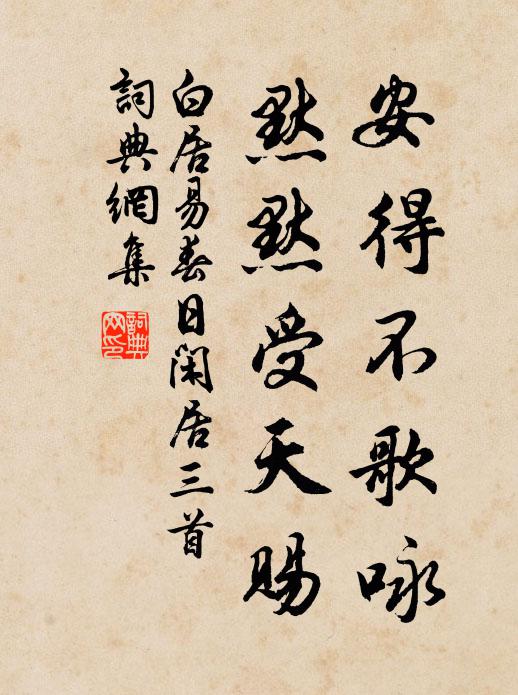 安得不歌咏
默默受天賜
白居易春日閑居三首
詞典網集
詞典網印